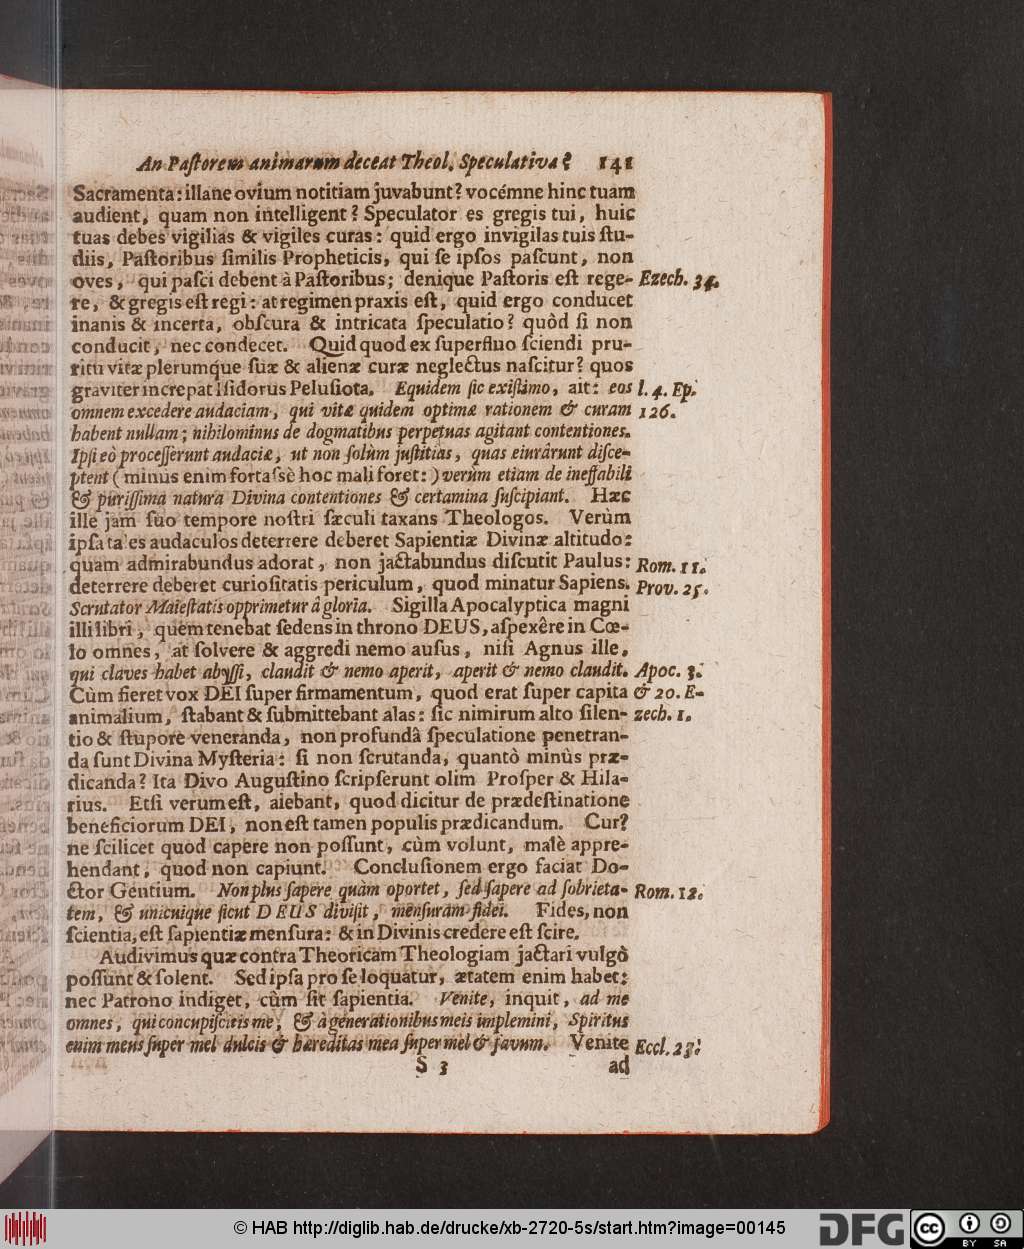 An Paſtorem animarum deceat Theol. Speculativa? 141
Sacramenta: illane ovium notitiam juvabunt? vocémne hinc tuam
audient, quam non intelligent? Speculator es gregis tui, huic
tuas debes vigilias & vigiles curas: quid ergo invigilas tuis ſtu-
diis, Paſtoribus ſimilis Propheticis, qui ſe ipſos paſcunt, non
oves, qui paſci debent à Paſtoribus; denique Paſtoris eſt rege- Ezech. 34.
re, & gregis eſt regi: at regimen praxis eſt, quid ergo conducet
inanis & incerta, obſcura & intricata ſpeculatio? quòd ſi non
conducit, nec condecet. Quid quod ex ſuperfluo ſciendi pru-
ritu vitæ plerumque ſuæ & alienæ curæ neglectus naſcitur? quos
graviter increpat Iſidorus Peluſiota. Equidem ſic exiſtimo, ait: eos l. 4. Ep.
omnem excedere audaciam, qui vitæ quidem optimæ rationem & curam 126.
habent nullam; nihilominus de dogmatibus perpetuas agitant contentiones.
Ipſi eò proceſſerunt audaciæ, ut non ſolùm juſtitias, quas eiurârunt diſce-
ptent (minùs enim fortaſsè hoc mali foret:) verùm etiam de ineffabili
& puriſſima natura Divina contentiones & certamina ſuſcipiant. Hæc
ille jam ſuo tempore noſtri ſæculi taxans Theologos. Verùm
ipſa tales audaculos deterrere deberet Sapientiæ Divinæ altitudo:
quam admirabundus adorat, non jactabundus diſcutit Paulus: Rom. 11.
deterrere deberet curioſitatis periculum, quod minatur Sapiens. Prov. 25.
Scrutator Maieſtatis opprimetur â gloria. Sigilla Apocalyptica magni
illi libri, quem tenebat ſedens in throno DEUS, aſpexêre in Cœ-
lo omnes, at ſolvere & aggredi nemo auſus, niſi Agnus ille,
qui claves habet abyſſi, claudit & nemo aperit, aperit & nemo claudit. Apoc. 3.
Cùm fieret vox DEI ſuper firmamentum, quod erat ſuper capita & 20. E-
animalium, ſtabant & ſubmittebant alas: ſic nimirum alto ſilen- zech. 1.
tio & ſtupore veneranda, non profundâ ſpeculatione penetran-
da ſunt Divina Myſteria: ſi non ſcrutanda, quantò minùs præ-
dicanda? Ita Divo Auguſtino ſcripſerunt olim Proſper & Hila-
rius. Etſi verum eſt, aiebant, quod dicitur de prædeſtinatione
beneficiorum DEI, non eſt tamen populis prædicandum. Cur?
ne ſcilicet quod capere non poſſunt, cùm volunt, malè appre-
hendant, quod non capiunt. Concluſionem ergo faciat Do-
ctor Gentium. Non plus ſapere quàm oportet, ſed ſapere ad ſobrieta- Rom. 12.
tem, & unicuique ſicut DEUS diviſit, menſuram fidei. Fides, non
ſcientia, eſt ſapientiæ menſura: & in Divinis credere eſt ſcire.
Audivimus quæ contra Theoricam Theologiam jactari vulgò
poſſunt & ſolent. Sed ipſa pro ſe loquatur, ætatem enim habet:
nec Patrono indiget, cùm ſit ſapientia. Venite, inquit, ad me
omnes, qui concupiſcitis me, & à generationibus meis implemini, Spiritus
enim meus ſuper mel dulcis & hæreditas mea ſuper mel & favum. Venite Eccl. 23.
S 3 ad
© HAB http://diglib.hab.de/drucke/xb-2720-5s/start.htm?image=00145
DFG
cc BY SA